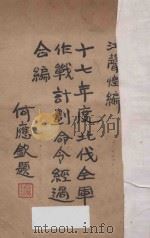 江声煌編
十七年度北伐全軍
作戰計劃命令經過
合編
何應欽題